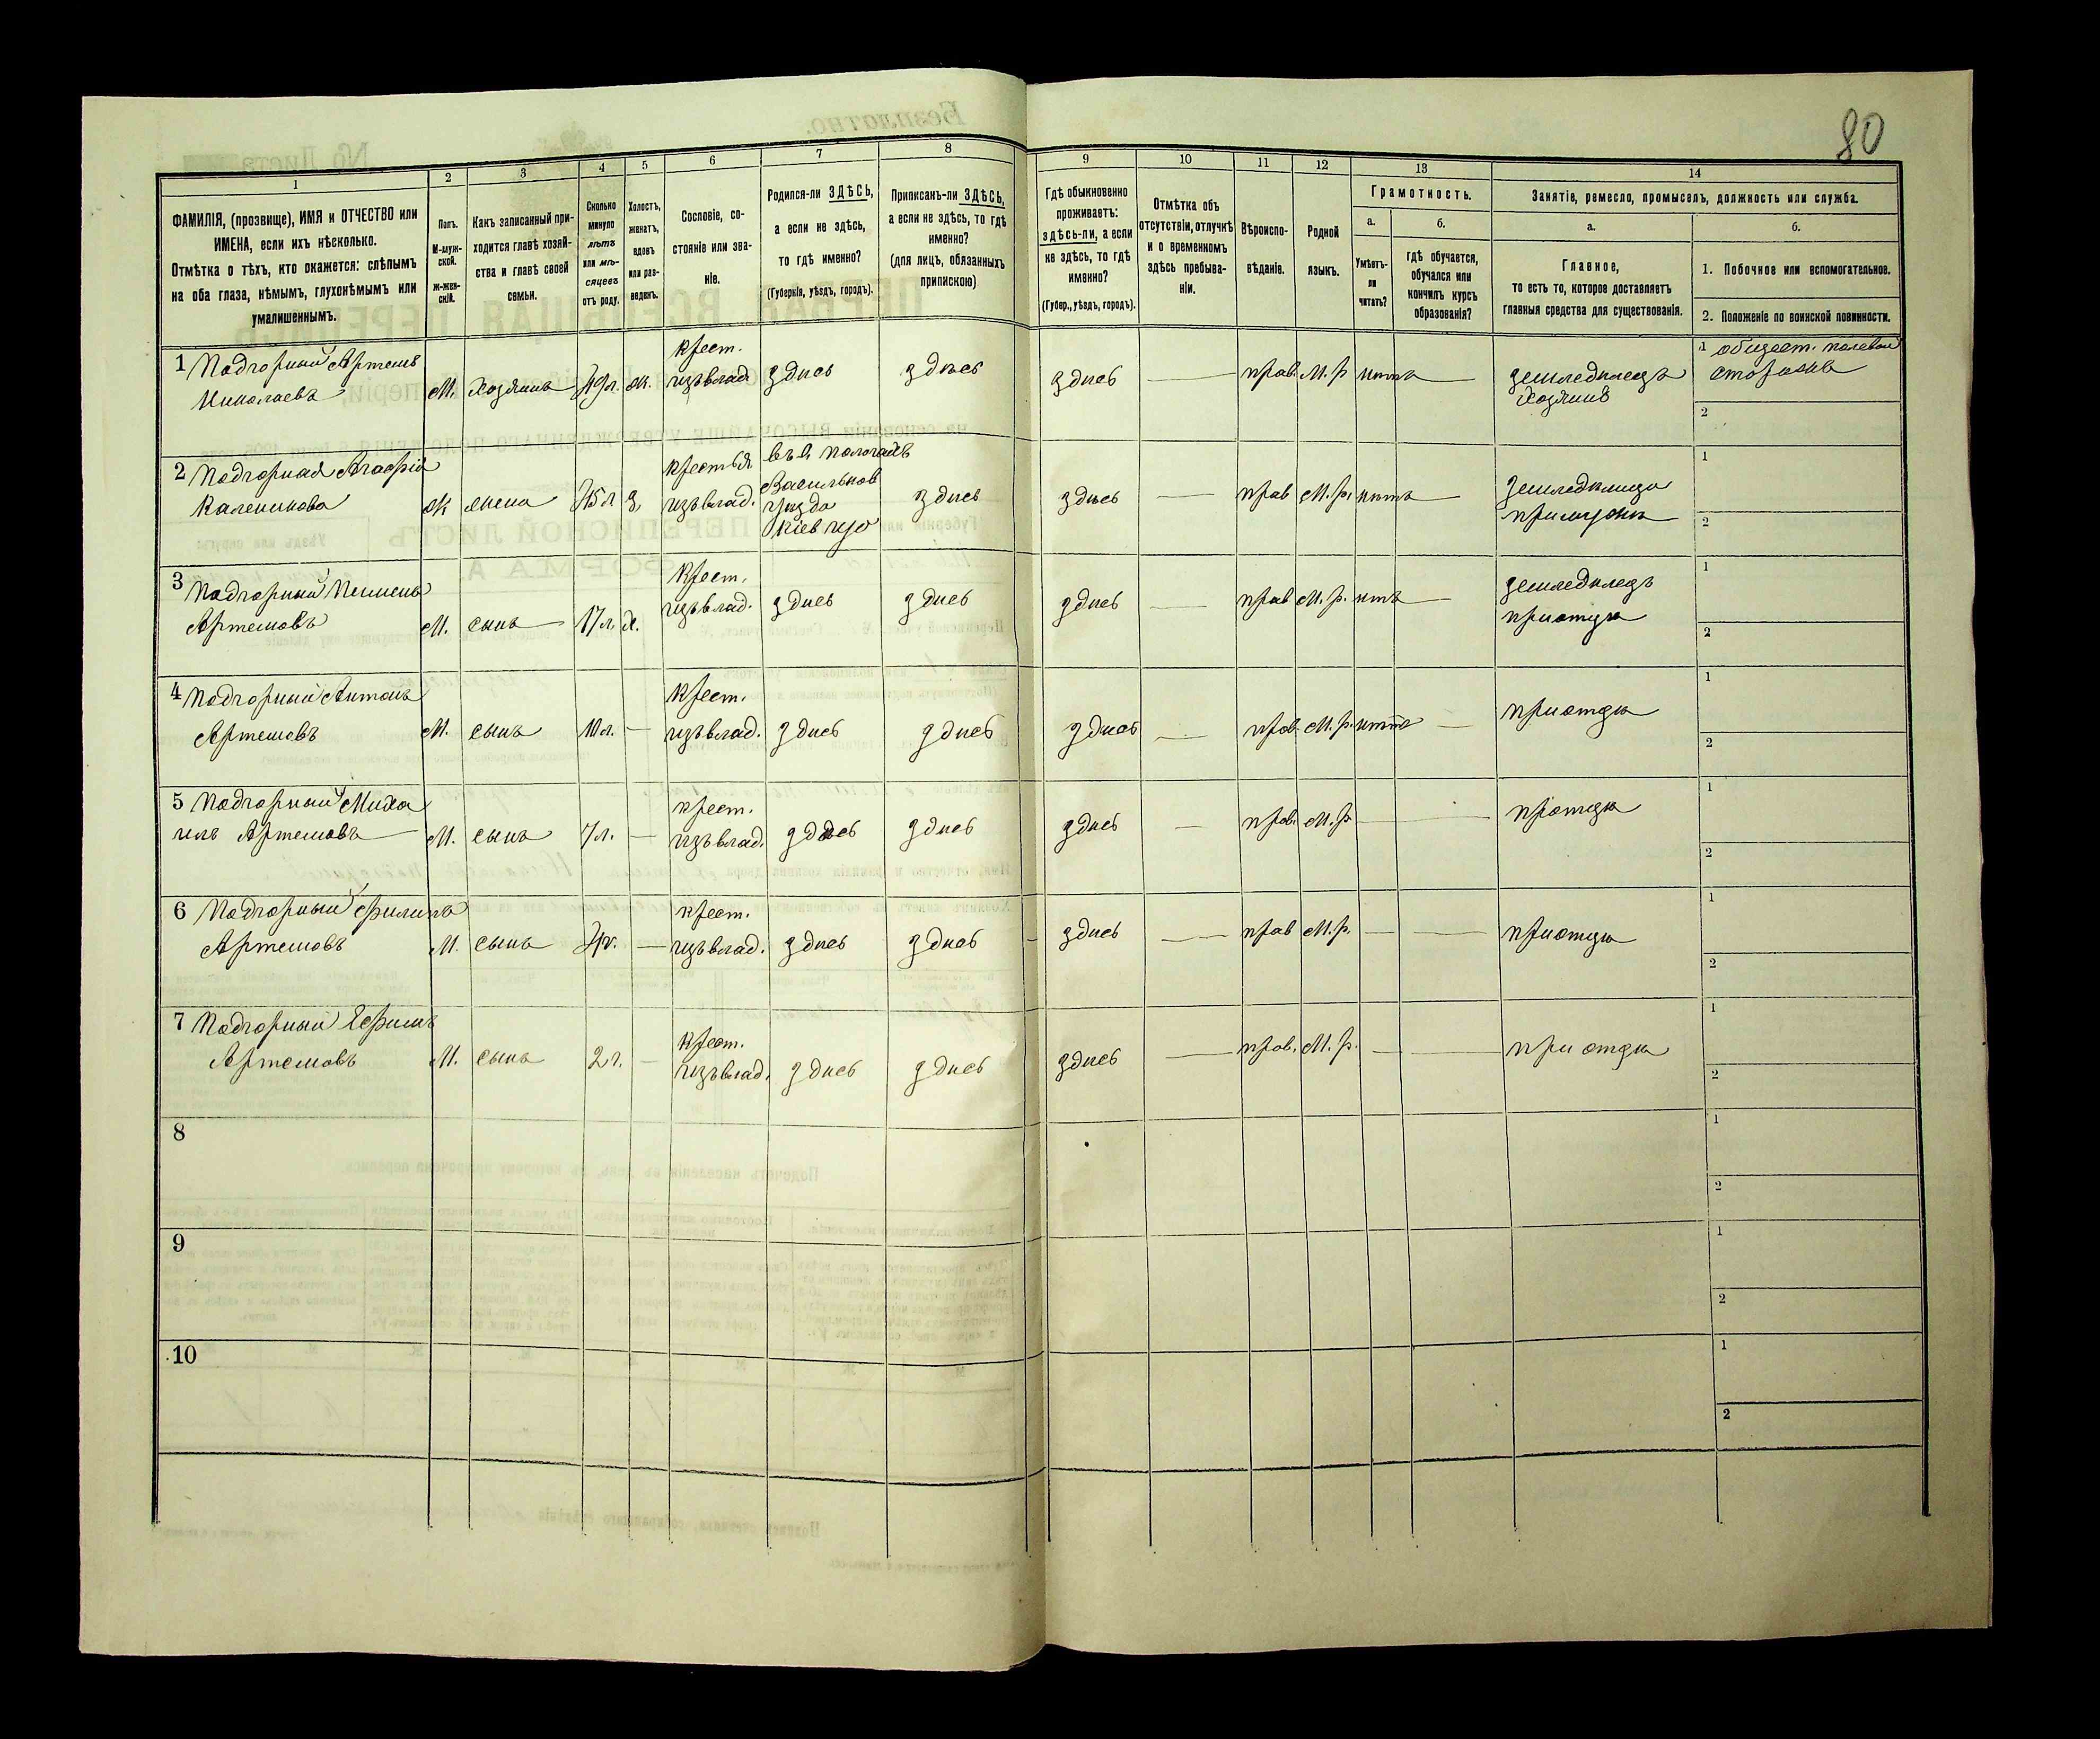 80
1
2
3
4
5
6
7
8
9
10
11
12
13
14
ФАМИЛІЯ, (прозвище), ИМЯ и ОТЧЕСТВО или
ИМЕНА, если ихъ нѣсколько.
Отмѣтка о тѣхъ, кто окажется: слѣпымъ
на оба глаза, нѣмымъ, глухонѣмымъ или
умалишеннымъ.
Полъ.
М-муж-
ской.
Ж-жен-
скій.
Какъ записанный при-
ходится главѣ хозяй-
ства и главѣ своей
семьи.
Сколько
минуло
лѣтъ
или мѣ-
сяцевъ
отъ роду.
Холостъ,
женатъ,
вдовъ
или раз-
веденъ.
Сословіе, со-
стояніе или зва-
ніе.
Родился-ли ЗДѢСЬ,
а если не здѣсь,
то гдѣ именно?
(Губернія, уѣздъ, городъ).
Приписанъ-ли ЗДѢСЬ,
а если не здѣсь, то гдѣ
именно?
(для лицъ, обязанныхъ
припискою)
Гдѣ обыкновенно
проживаетъ:
здѣсь-ли, а если
не здѣсь, то гдѣ
именно?
(Губер., уѣздъ, городъ).
Отмѣтка объ
отсутствіи, отлучкѣ
и о временномъ
здѣсь пребыва-
ніи.
Вѣроиспо-
вѣданіе.
Родной
языкъ.
Грамотность.
а.
Умѣетъ-
ли
читать?
б.
гдѣ обучается,
обучался или
кончилъ курсъ
образованія?
Занятіе, ремесло, промыселъ, должность или служба.
а.
Главное,
то есть то, которое доставляетъ
главныя средства для существованія.
б.
1. Побочное или вспомогательное.
2. Положеніе по воинской повинности.
1 Подгорный Артемъ
Николаевъ
М. Хозяинъ 49 л. ж. крест.
изъ влад. здѣсь здѣсь здѣсь — прав. М.р. нѣтъ — земледѣлецъ
хозяинъ
1 общест. полевой
сторожъ
2
2 Подгорная Агафія
Каленикова
Ж жена 45 л з. крестья.
изъ влад. въ с. Пологахъ
Васильков
уѣзда
Кіев губ здѣсь здѣсь — прав М.р. нѣтъ — земледѣлица
при мужѣ
1
2
3 Подгорный Пимень
Артемовъ
М. сынъ 17 л. х. Крест.
изъ влад. здѣсь здѣсь здѣсь — прав М.р. нѣтъ — земледѣлецъ
при отцѣ
1
2
4 Подгорный Антонъ
Артемовъ
М. сынъ 10 л. — Крест.
изъ влад. здѣсь здѣсь здѣсь — прав. М.р. нѣтъ — при отцѣ
1
2
5 Подгорный Миха
илъ Артемовъ
М. сынъ 7 л. — крест.
изъ влад. здѣсь здѣсь здѣсь — прав. М.р. — — при отцѣ
1
2
6 Подгорный Филипъ
Артемовъ
М. сынъ 4 г. — крест.
изъ влад. здѣсь здѣсь здѣсь — прав М.р. — — при отцѣ
1
2
7 Подгорный Ефимъ
Артемовъ
М. сынъ 2 г. — крест.
изъ влад. здѣсь здѣсь здѣсь — прав. М.р. — — при отцѣ
1
2
8
1
2
9
1
2
10
1
2